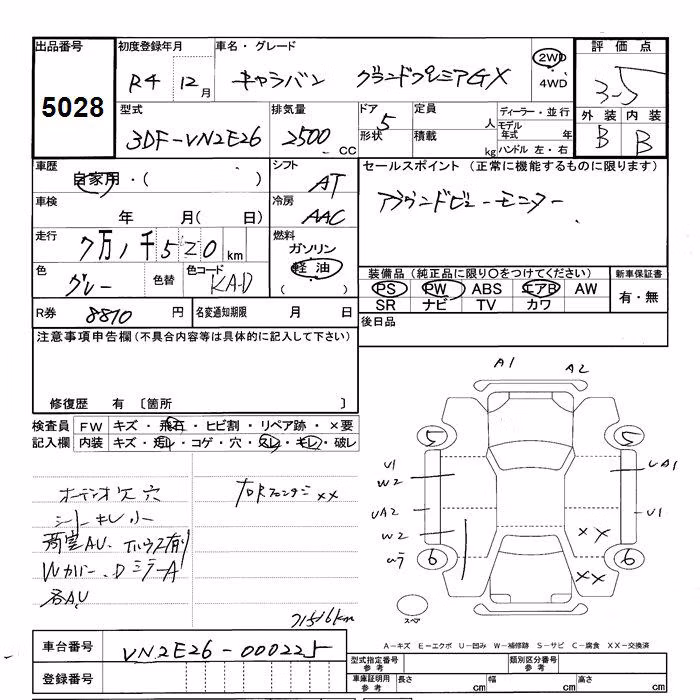 出品番号
5028
初度登録年月
R4 12月
車名・グレード
キャラバン グランドプレミアGX
2WD
4WD
評価点
3-5
外装 内装
B B
型式
3DF-VN2E26
排気量
2500 CC
ドア
5
形状
定員
人
積載
kg
ディーラー・並行
モデル年式 年
ハンドル 左・右
車歴
自家用・( )
車検
年 月( 日)
走行
7万1千520km
色
グレー
色替
色コード
KAD
シフト
AT
冷房
AAC
燃料
ガソリン
軽油
( )
セールスポイント (正常に機能するものに限ります)
アラウンドビューモニター
装備品(純正品に限り○をつけてください)
PS PW ABS エアB AW
SR ナビ TV カワ
新車保証書
有・無
R券 8810 円
名変通知期限 月 日
後日品
注意事項申告欄(不具合内容等は具体的に記入して下さい)
修復歴 有 〔箇所 〕
検査員記入欄
FW キズ・飛石・ヒビ割・リペア跡・×要
内装 キズ・汚レ・コゲ・穴・スレ・キレ・破レ
オーデオ欠穴
シートキレ小
荷室AU、
Wカバー、DミラーA
各AU
71516km
A1 A2
5 5
U1
W2
UA1
UA2
U1
W2
××
6 6
××
スペア
A-キズ E-エクボ U-凹み W-補修跡 S-サビ C-腐食 XX-交換済
車台番号
VN2E26-000225
登録番号
型式指定番号 参考
類別区分番号 参考
車庫証明用 参考
長さ cm
幅 cm
高さ cm